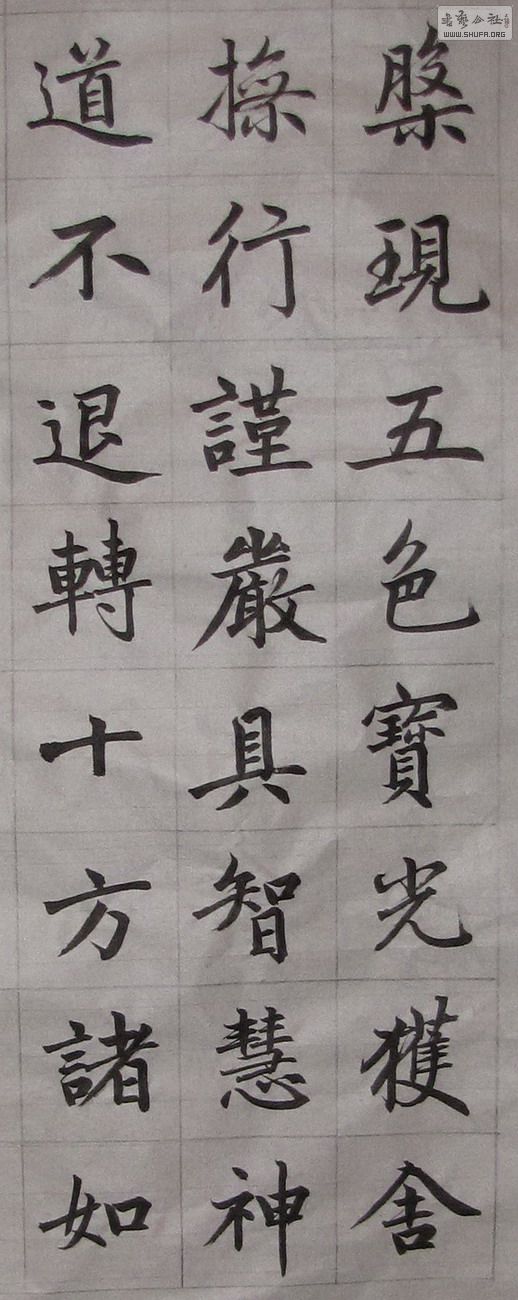 槃現五色寶光獲舍
操行謹嚴具智慧神
道不退轉十方諸如
书艺公社
WWW.SHUFA.ORG